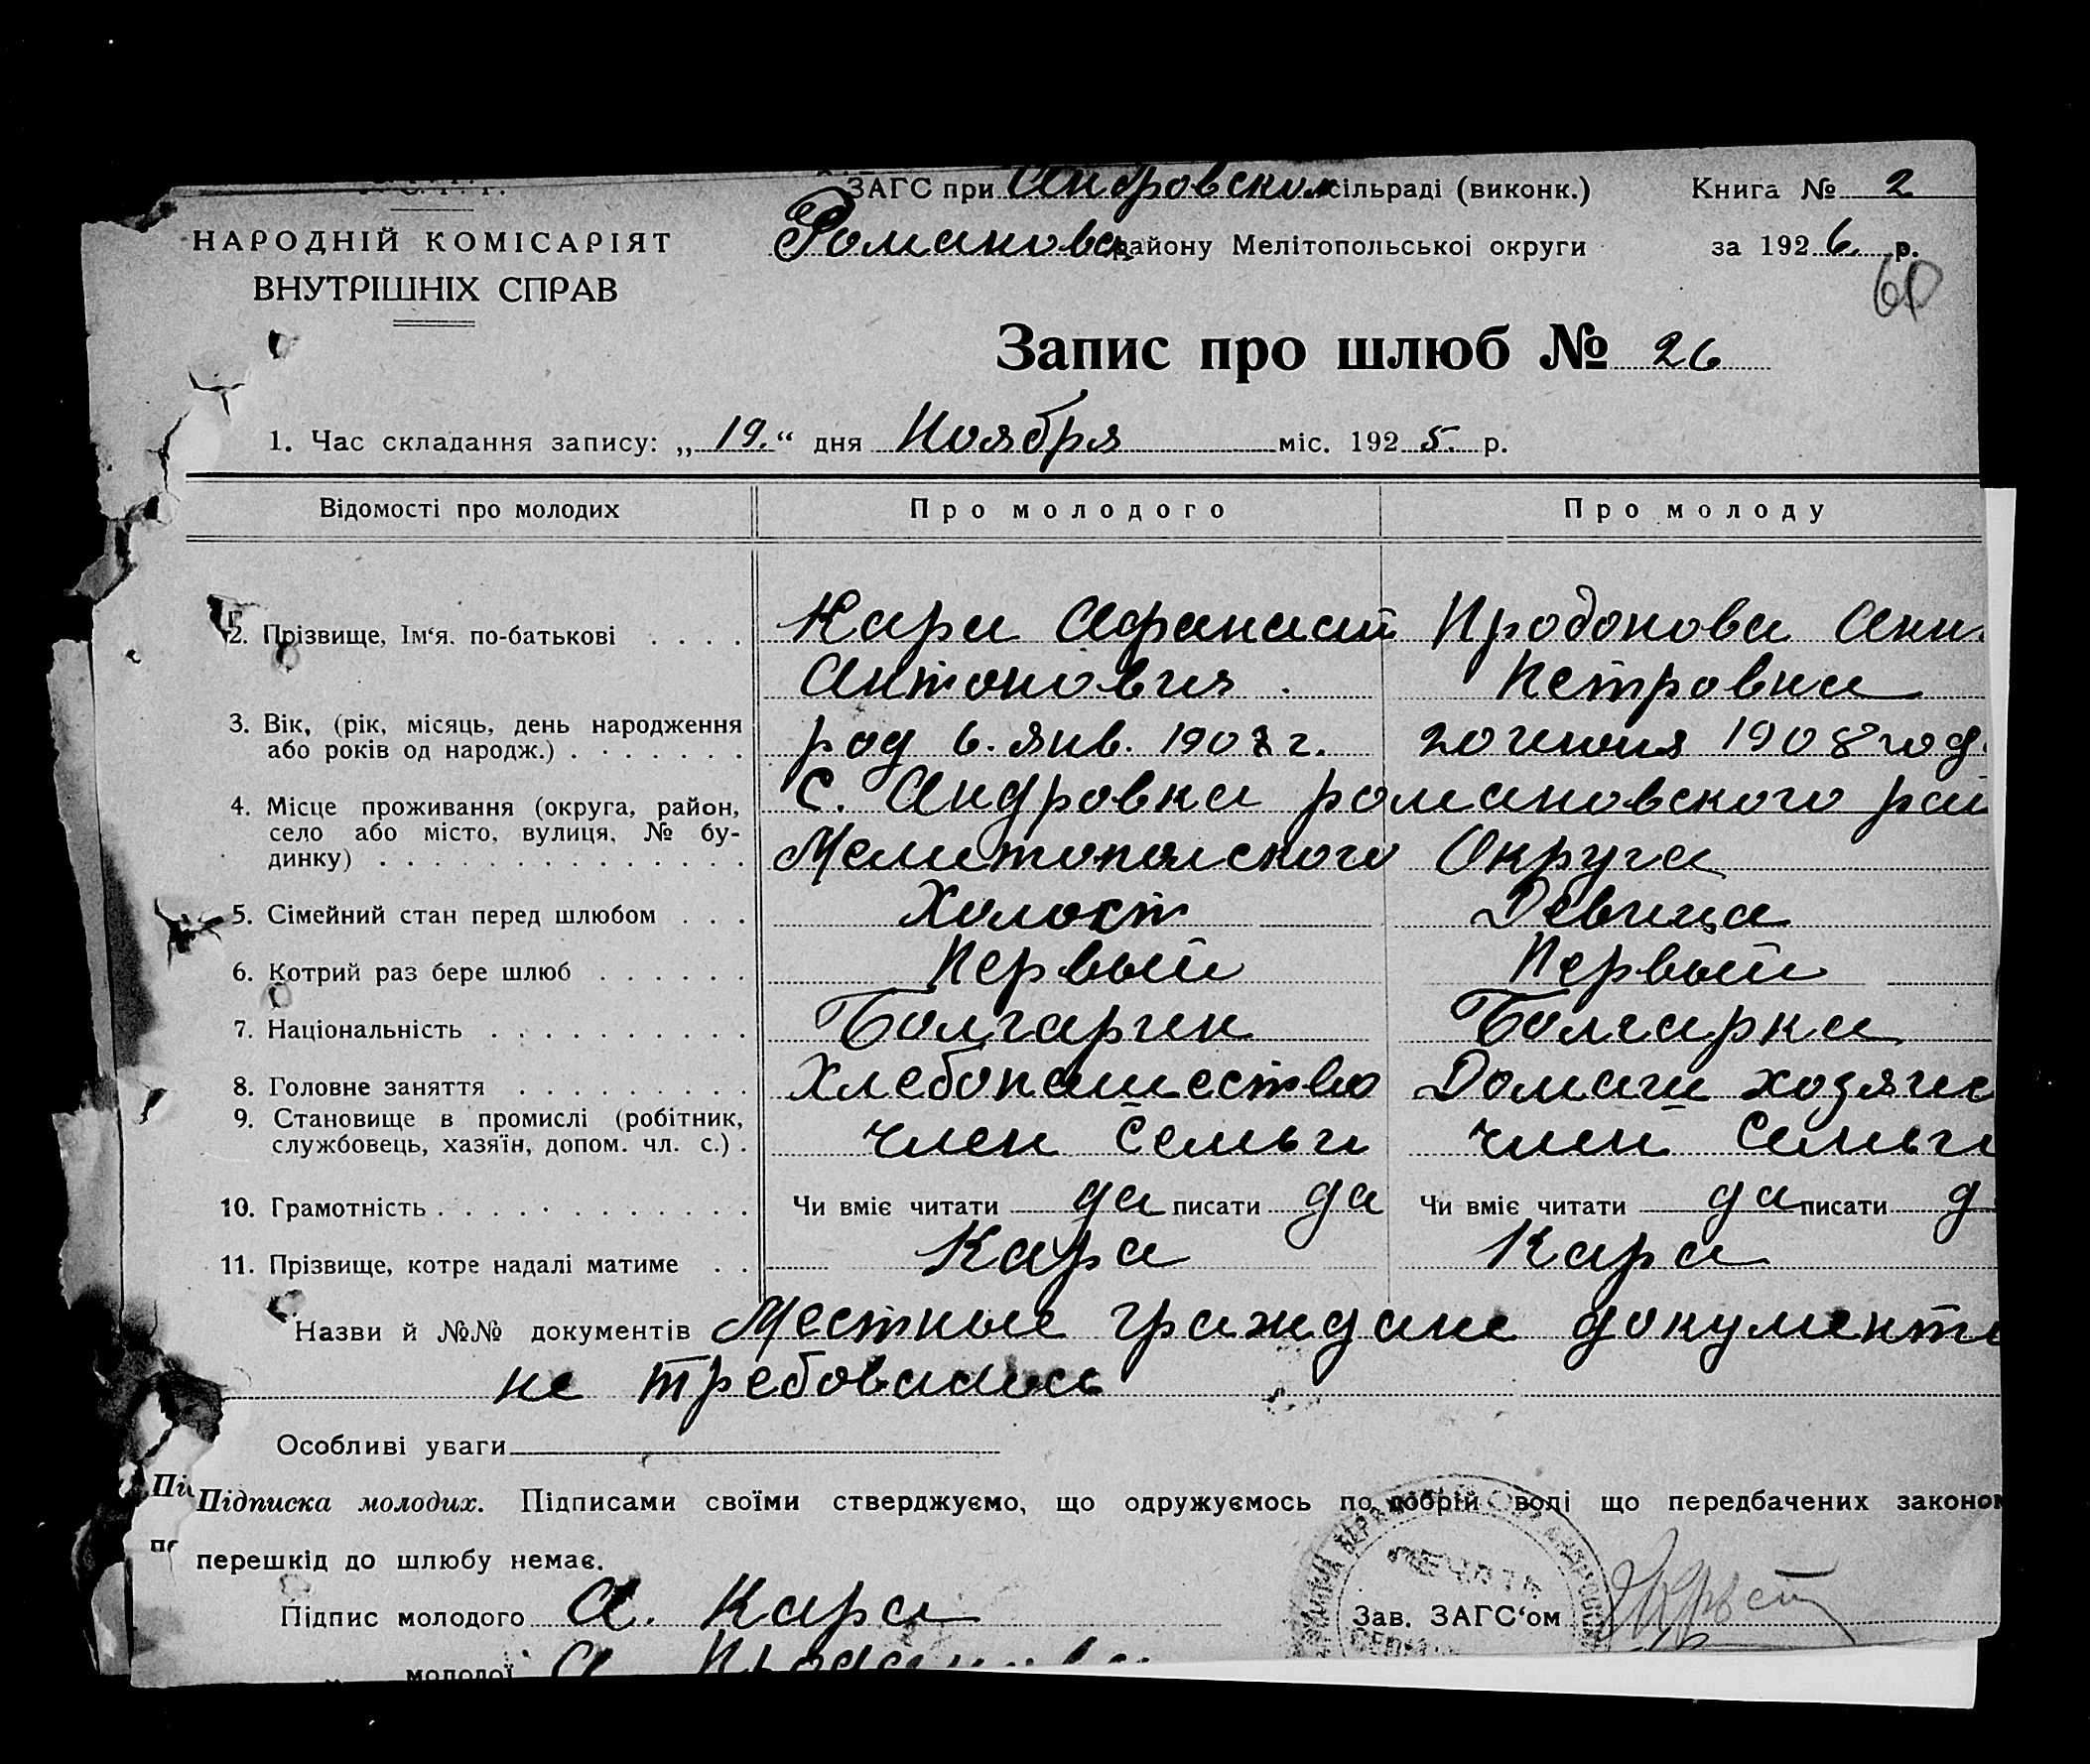 ЗАГС при Андровском сільраді (виконк.) Книга № 2
НАРОДНІЙ КОМІСАРІЯТ Романовск району Мелітопольської округи за 1926 р.
ВНУТРІШНІХ СПРАВ 60
Запис про шлюб № 26
1. Час складання запису: „19.“ дня Ноября міс. 1925. р.
Відомості про молодих Про молодого Про молоду
2. Прізвище, Ім‘я. по-батькові . . . . Кара Афанасий Продонова Анн
Антонович . Петровна
3. Вік, (рік, місяць, день народження
або років од народж.) . . . . . . . род 6. янв. 1908 г. 20 июня 1908 год
4. Місце проживання (округа, район, С. Андровка романовского рай
село або місто, вулиця, № бу-
динку) . . . . . . . . . . . . . . . Мелитополского Округа
5. Сімейний стан перед шлюбом . . . Холост Девица
6. Котрий раз бере шлюб . . . . . . Первый Первый
7. Національність . . . . . . . . . . Болгарин Болгарка
8. Головне заняття . . . . . . . . . Хлебопашество Домаш хозяис
9. Становище в промислі (робітник,
службовець, хазяїн, допом. чл. с.) . член Семьи член Семьи
10. Грамотність . . . . . . . . . . . . Чи вміє читати да писати да Чи вміє читати да писати д
11. Прізвище, котре надалі матиме . . Кара Кара
Назви й №№ документів Местные граждане документ
не требовались
Особливі уваги
Пі Підписка молодих. Підписами своїми стверджуємо, що одружуємось по добрій волі що передбачених законом
перешкід до шлюбу немає.
ПЕЧАТЬ
Підпис молодого А. Кара Зав. ЗАГС‘ом
молодої А Продонова